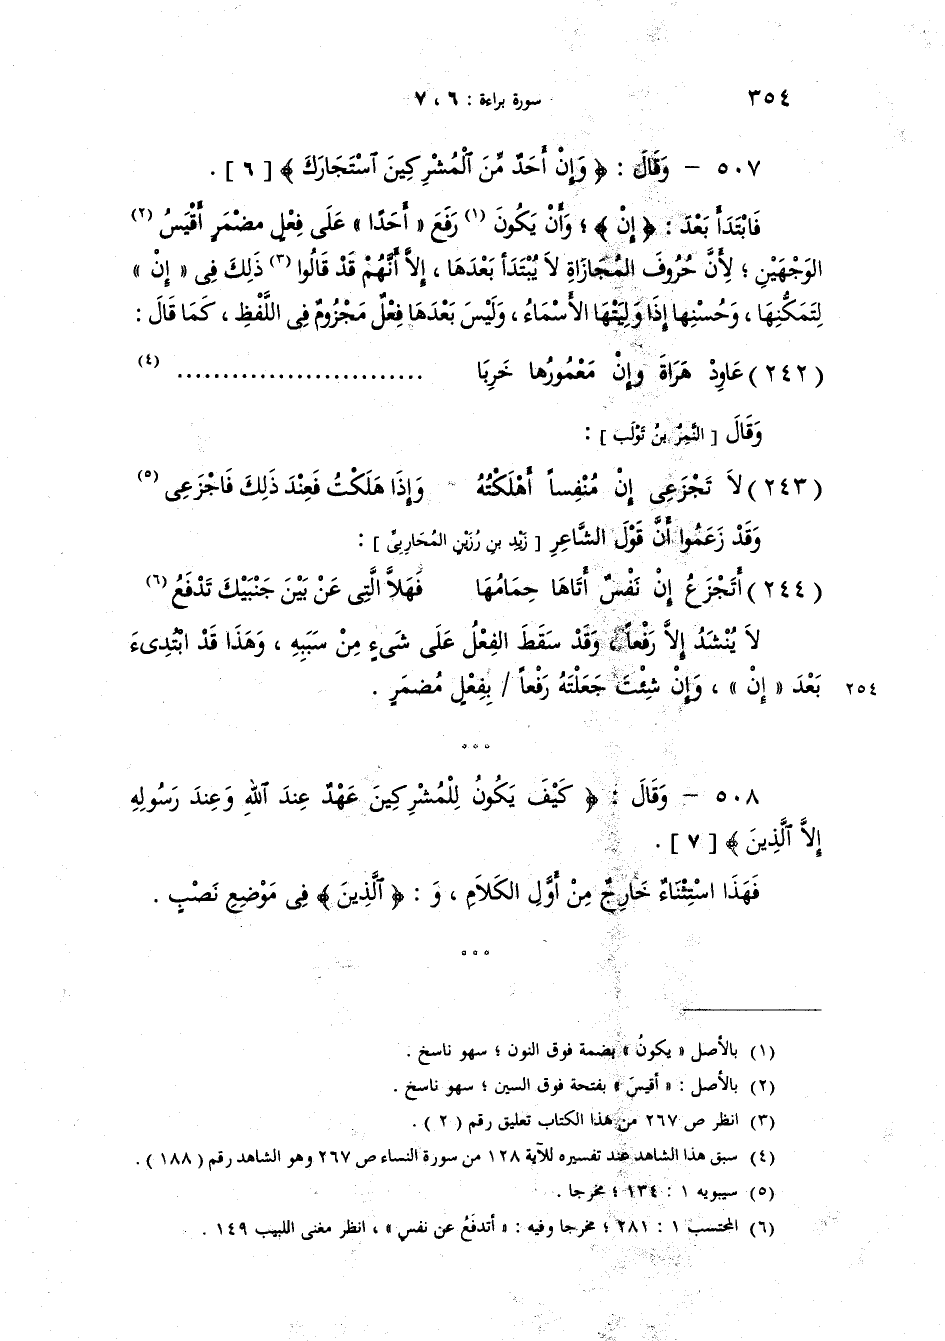 ٣٥٤ سورة براءة : ٦ ، ٧
٥٠٧ – وَقَالَ : ﴿ وَإِنْ أَحَدٌ مِّنَ ٱلْمُشْرِكِينَ ٱسْتَجَارَكَ ﴾ [ ٦ ] .
فَابْتَدَأَ بَعْدَ : ﴿ إِنْ ﴾ ؛ وَأَنْ يَكُونَ (١) رَفَعَ « أَحَدًا » عَلَى فِعْلٍ مضْمَرٍ أَقْيَسُ (٢)
الوَجْهَيْنِ ؛ لِأَنَّ حُرُوفَ المُجَازَاةِ لاَ يُبْتَدَأ بَعْدَهَا ، إِلاَّ أَنَّهُمْ قَدْ قَالُوا (٣) ذَلِكَ فِى « إِنْ »
لِتَمَكُّنِهَا ، وَحُسْنِها إِذَا وَلِيَتْهَا الأَسْمَاءُ ، وَلَيْسَ بَعْدَهَا فِعْلٌ مَجْزُومٌ فِى اللَّفْظِ ، كَمَا قَالَ :
(٢٤٢) عَاوِدْ هَرَاةَ وإِنْ مَعْمُورُها خَرِبَا ........................... (٤)
وَقَالَ [ النَّمِرُ بنُ تَوْلَب ] :
(٢٤٣) لاَ تَجْزَعِى إِنْ مُنْفِساً أَهْلَكْتُهُ وَإِذَا هَلَكْتُ فَعِنْدَ ذَلِكَ فَاجْزَعِى (٥)
وَقَدْ زَعَمُوا أَنَّ قَوْلَ الشَّاعِرِ [ زَيْدِ بنِ رُزَيْنِ المُحَارِبِىِّ ] :
(٢٤٤) أَتَجْزَعُ إِنْ نَفْسٌ أَتَاهَا حِمَامُهَا فَهَلاَّ الَّتِى عَنْ بَيْنَ جَنْبَيْكَ تَدْفَعُ (٦)
لاَ يُنْشَدُ إِلاَّ رَفْعاً ، وَقَدْ سَقَطَ الفِعْلُ عَلَى شَىءٍ مِنْ سَبَبِهِ ، وَهَذَا قَدْ ابْتُدِىءَ
٢٥٤ بَعْدَ « إِنْ » ، وَإِنْ شِئْتَ جَعَلْتَهُ رَفْعاً / بِفِعْلٍ مُضمَرٍ .
° ° °
٥٠٨ – وَقَالَ : ﴿ كَيْفَ يَكُونُ لِلْمُشْرِكِينَ عَهْدٌ عِندَ ٱللهِ وَعِندَ رَسُولِهِ
إِلاَّ ٱلَّذِينَ ﴾ [ ٧ ] .
فَهَذَا اسْتِثْنَاءٌ خَارِجٌ مِنْ أَوَّلِ الكَلاَمِ ، وَ : ﴿ ٱلَّذِينَ ﴾ فِى مَوْضِعِ نَصْبٍ .
° ° °
(١) بالأصل « يكونُ » بضمة فوق النون ؛ سهو ناسخ .
(٢) بالأصل : « أقيسَ » بفتحة فوق السين ؛ سهو ناسخ .
(٣) انظر ص ٢٦٧ من هذا الكتاب تعليق رقم ( ٢ ) .
(٤) سبق هذا الشاهد عند تفسيره للآية ١٢٨ من سورة النساء ص ٢٦٧ وهو الشاهد رقم ( ١٨٨ ) .
(٥) سيبويه ١ : ١٣٤ ؛ مخرجا .
(٦) المحتسب ١ : ٢٨١ ؛ مخرجا وفيه : « أتدفَعُ عن نفسٍ » ، انظر مغنى اللبيب ١٤٩ .